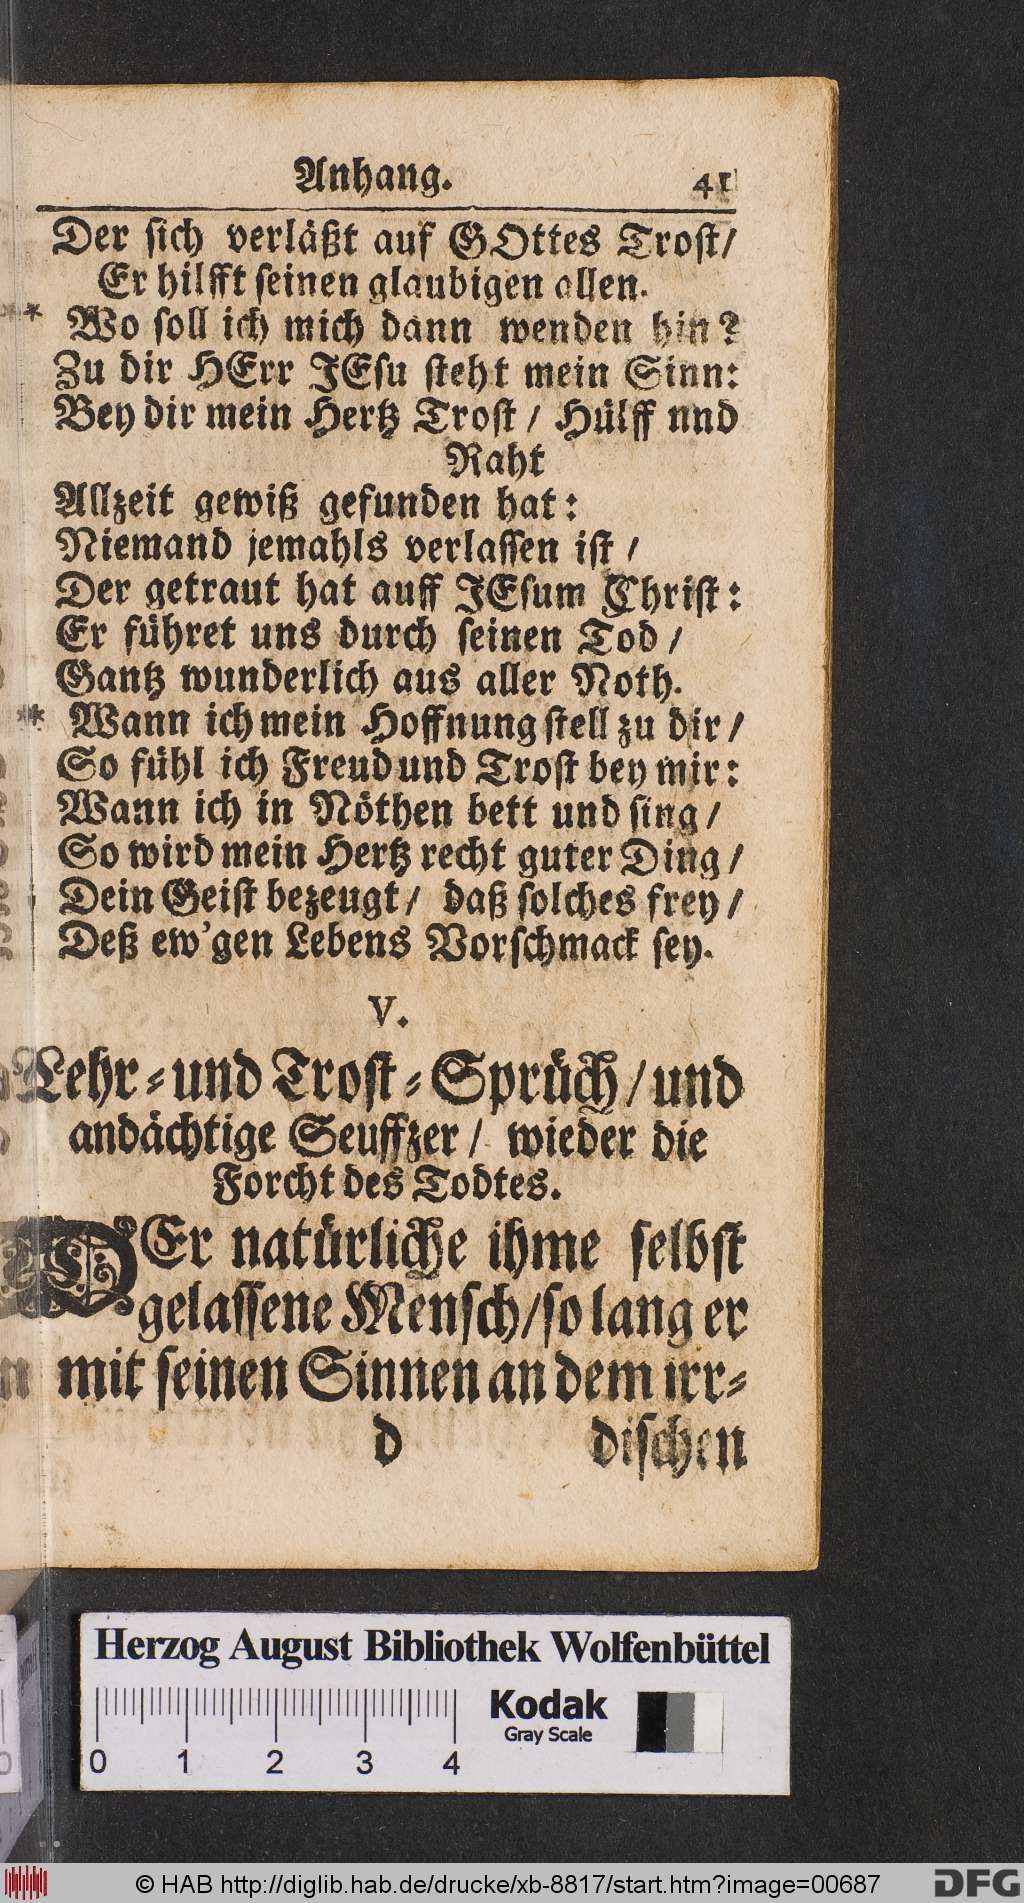 Anhang. 41
Der sich verläßt auf GOttes Trost/
Er hilfft seinen glaubigen allen.
** Wo soll ich mich dann wenden hin?
Zu dir HErr JEsu steht mein Sinn:
Bey dir mein Hertz Trost / Hülff nnd
Raht
Allzeit gewiß gefunden hat:
Niemand jemahls verlassen ist /
Der getraut hat auff JEsum Christ:
Er führet uns durch seinen Tod /
Gantz wunderlich aus aller Noth.
** Wann ich mein Hoffnung stell zu dir /
So fühl ich Freud und Trost bey mir:
Wann ich in Nöthen bett und sing /
So wird mein Hertz recht guter Ding /
Dein Geist bezeugt / daß solches frey /
Deß ew'gen Lebens Vorschmack sey.
V.
Lehr- und Trost-Sprüch / und
andächtige Seuffzer / wieder die
Forcht des Todtes.
DEr natürliche ihme selbst
gelassene Mensch / so lang er
mit seinen Sinnen an dem irr-
d dischen
Herzog August Bibliothek Wolfenbüttel
Kodak
Gray Scale
0 1 2 3 4
© HAB http://diglib.hab.de/drucke/xb-8817/start.htm?image=00687
DFG